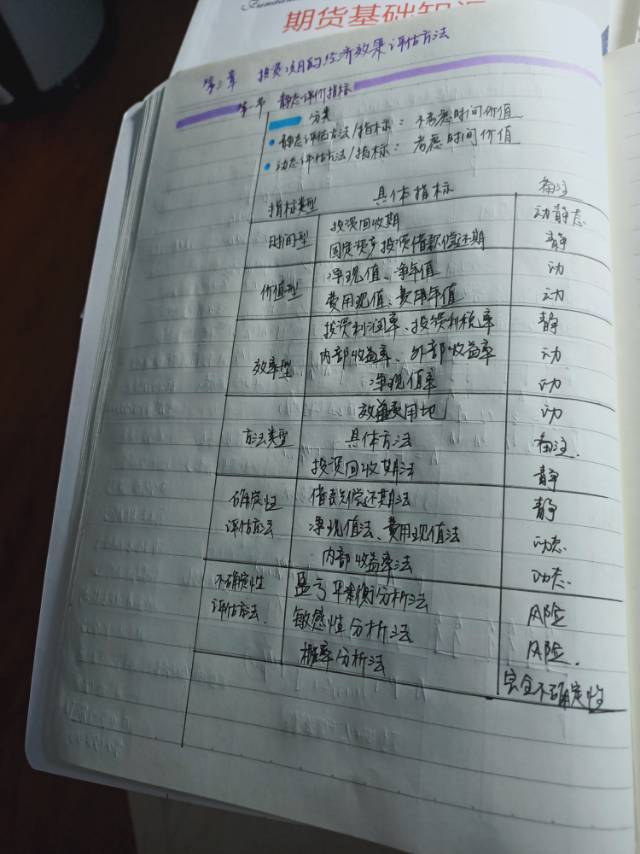 期货基础知识
第二章 投资项目的经济效果评估方法
第一节 静态评价指标
分类
静态评估方法/指标：不考虑时间价值
动态评估方法/指标：考虑时间价值
指标类型 具体指标 备注
时间型 投资回收期 动静态
固定资产投资借款偿还期 静
价值型 净现值、净年值 动
费用现值、费用年值 动
效率型 投资利润率、投资利税率 静
内部收益率、外部收益率 动
净现值率 动
效益费用比 动
方法类型 具体方法 备注.
投资回收期法 静
确定性评估方法 借款偿还期法 静
净现值法、费用现值法 动态
内部收益率法 动态.
不确定性评估方法. 盈亏平衡分析法 风险
敏感性分析法 风险.
概率分析法 完全不确定性